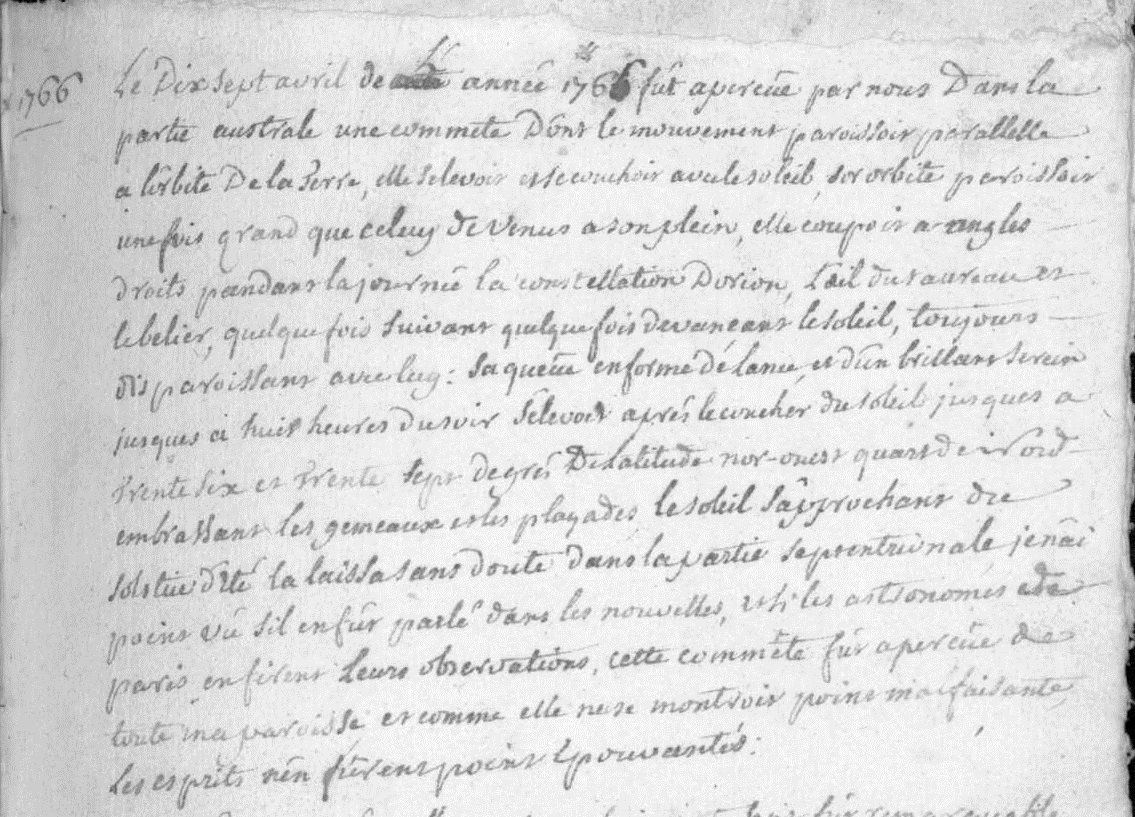 1766
Le Dix sept avril de L' année 1766 fût aperceüe par nous Dans la
partie australe une commète Dont le mouvement paroissoit parallelle
a l'orbite De la Terre, elle se levoit et se couchoit avec le soleil, son orbite paroissoit
une fois grand que celuy de Venus a son plein, elle coupoit a angles
droits pandant la journée la constellation Dorion, L'œil du taureau et
le belier, quelque fois suivant quelque fois devançant le soleil, toujours
disparoissant avec luy: sa queüe en forme de lance, et d'un brillant serein
jusques a huit heures du soir s'élevoit aprés le coucher du soleil jusques a
trente six et trente sept degrés De latitude nor-ouest quart de Nord
embrassant les gemeaux et les playades le soleil s'approchant du
solstice d'été la laissa sans doute dans la partie septentrionale je n'ai
point vû s'il en fût parlé dans les nouvelles, et si les astronomes de
paris en firent leurs observations, cette commète fût aperceüe de
toute ma paroisse et comme elle ne se montroit point malfaisante,
les esprits n'en fûrent point épouvantés: